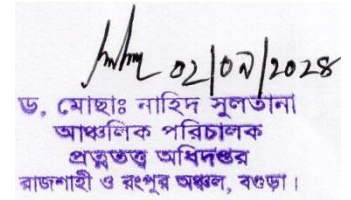 ০২/০৯/২০২৪
ড. মোছাঃ নাহিদ সুলতানা
আঞ্চলিক পরিচালক
প্রত্নতত্ত্ব অধিদপ্তর
রাজশাহী ও রংপুর অঞ্চল, বগুড়া।